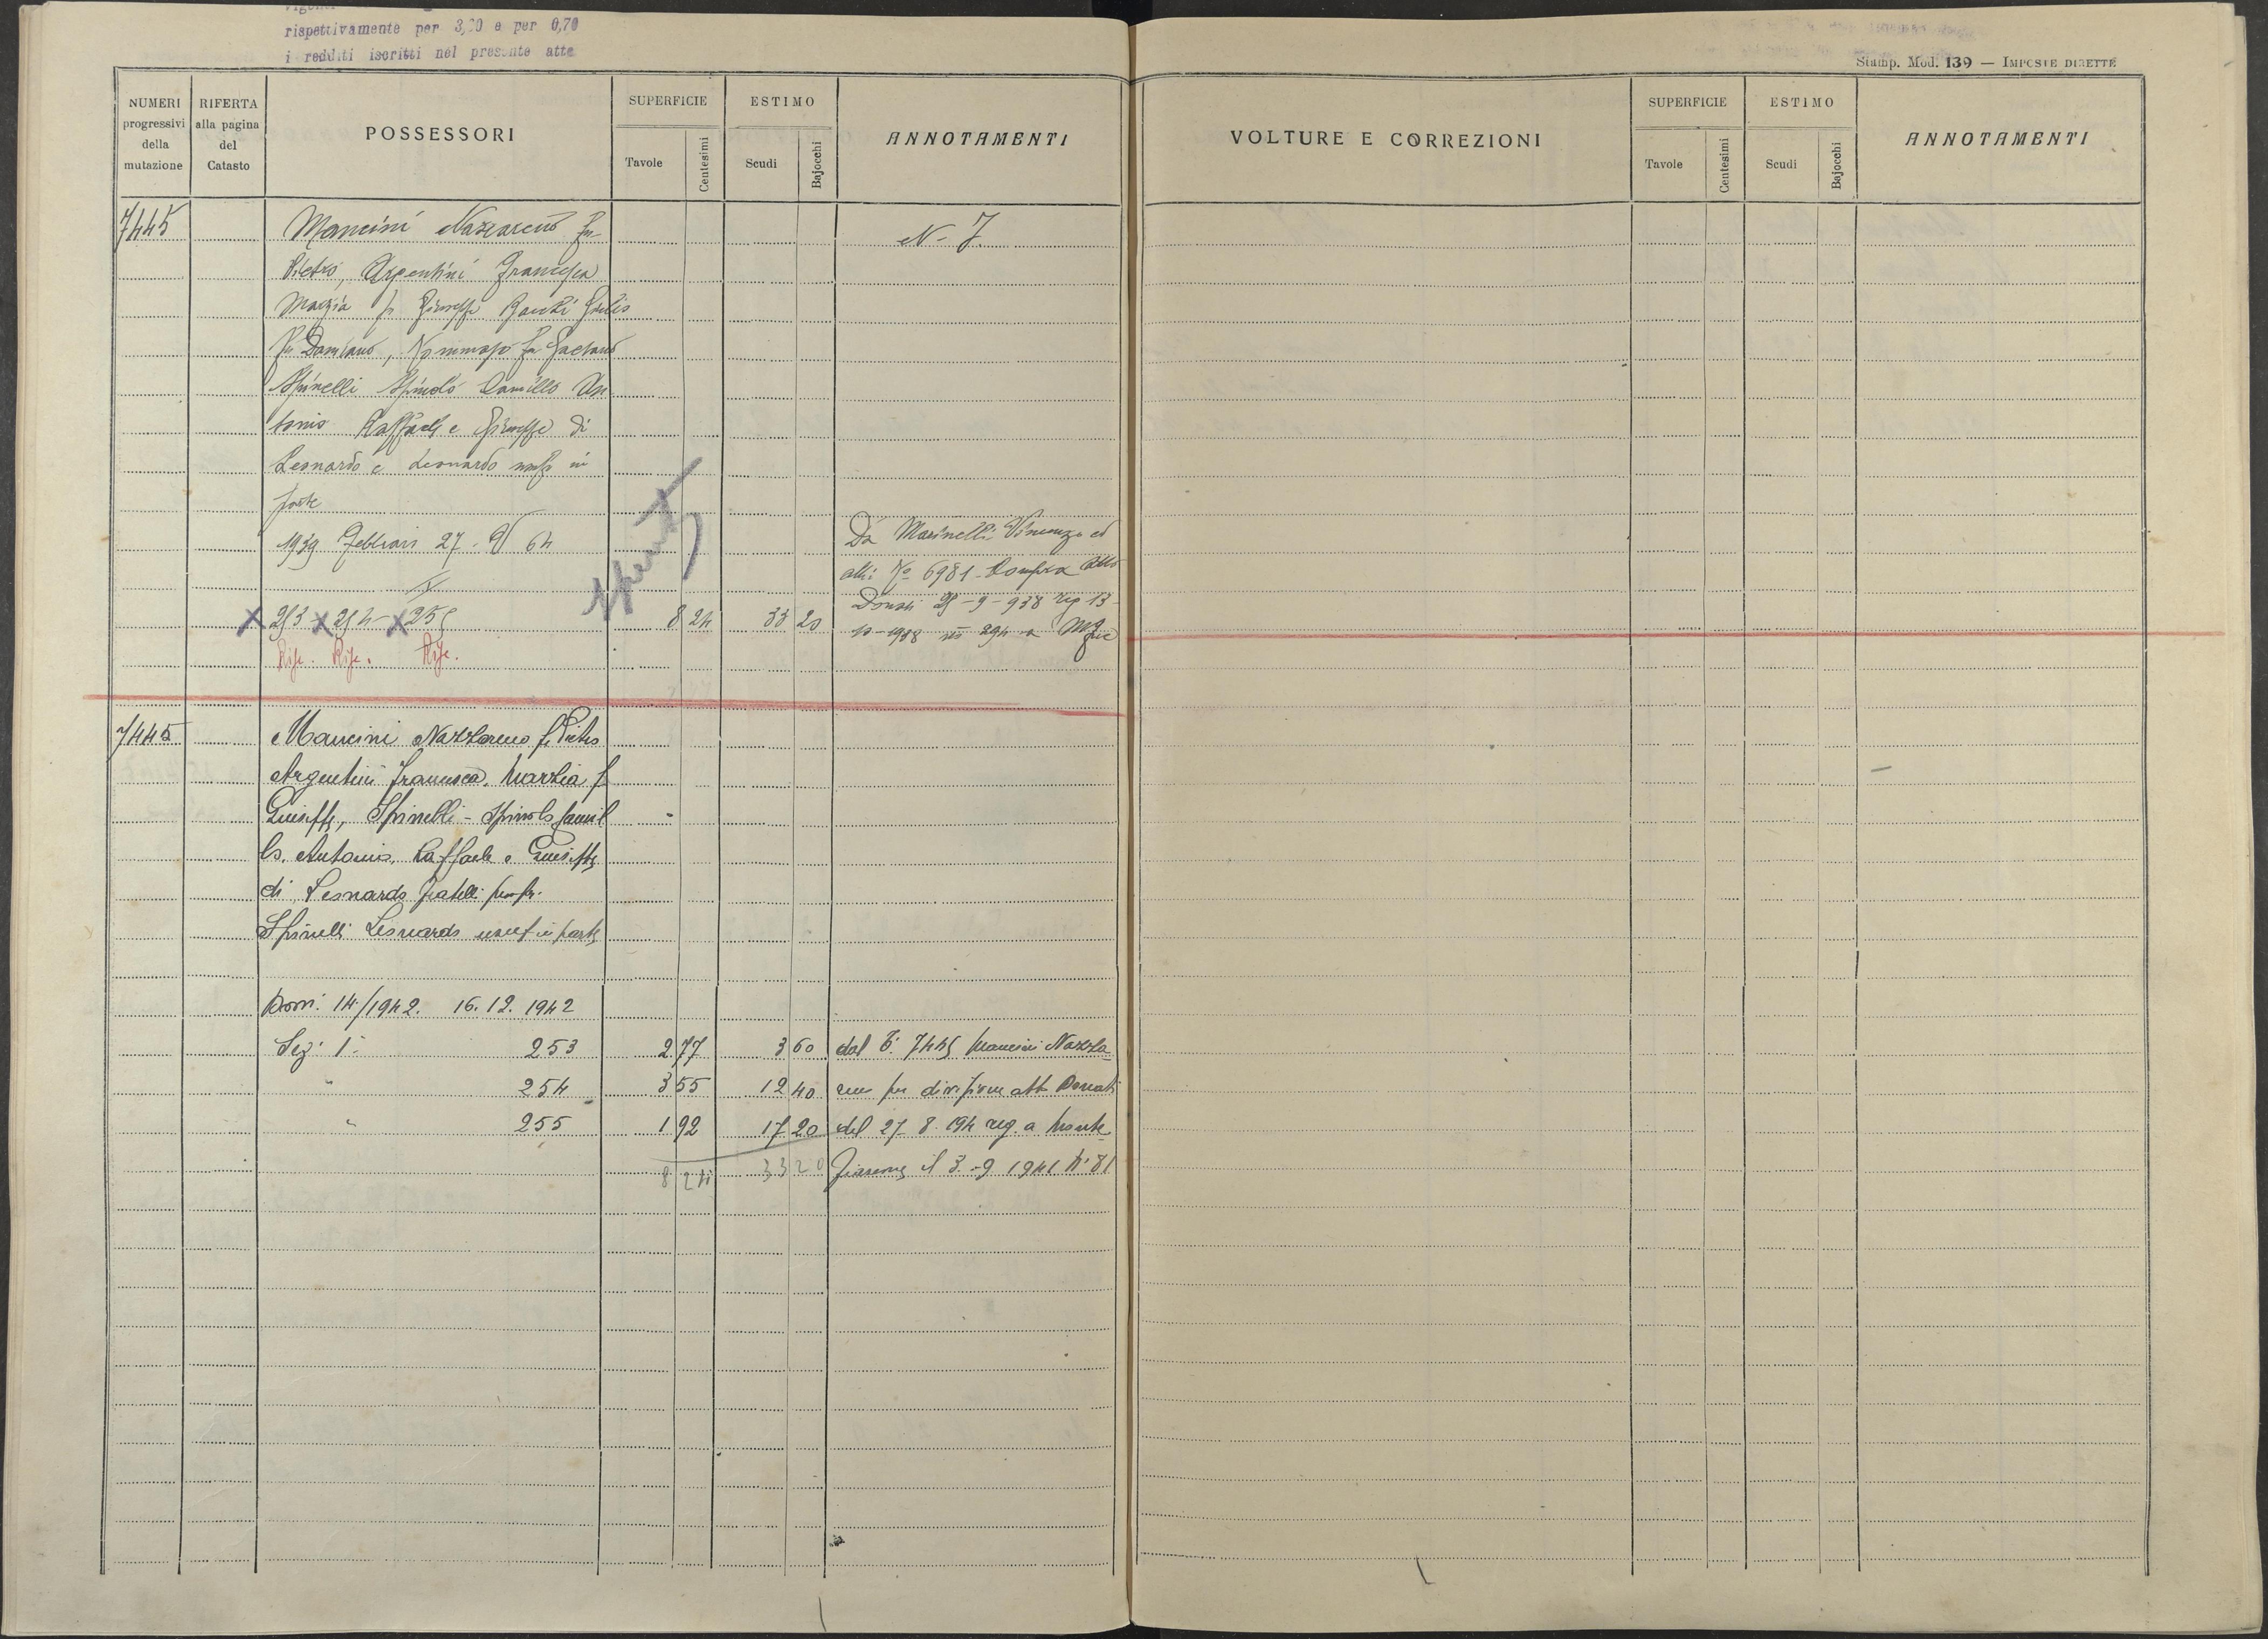 rispettivamente per 3,00 e per 0,70
i redditi iscritti nel presente atto
Stamp. Mod. 139 — IMPOSTE DIRETTE
NUMERI progressivi della mutazione
RIFERTA alla pagina del Catasto
POSSESSORI
SUPERFICIE
Tavole
Centesimi
ESTIMO
Scudi
Bajocchi
ANNOTAMENTI
VOLTURE E CORREZIONI
SUPERFICIE
Tavole
Centesimi
ESTIMO
Scudi
Bajocchi
ANNOTAMENTI
7445 Mancini Nazzareno fu N- 7
Pietro, Argentini Francesca
Marzia fu Giuseppe
fu Damiano, Tommaso fu Gaetano
Spinelli Spinolo Camillo An
tonio Raffaele e Giuseppe di
Leonardo e Leonardo usuf in
parte
1939 Febbraio 27. V 64 Da Marinelli Vincenzo ed
altri No 6981 Compra atto
X 253 X 254 - X 255 8 24 33 20 Donati 25-9-938 reg 13-
10-1938 294 a
Rife. Rife. Rife.
7445 Mancini Nazzareno f. Pietro
Argentini Francesca, Marzia f
Giuseppe, Spinelli - Spinolo Camil
lo, Antonio, Raffaele e Giuseppe
di Leonardo fratelli propr.
Spinelli Leonardo usuf in parte
Dom: 14/1942. 16.12.1942
Sez: 1: 253 2 77 3 60 dal C. 7445 Mancini Nazza-
" 254 3 55 12 40 reno per divisione atto Donati
" 255 1 92 17 20 del 27 8 194 reg. a Monte
8 24 33 20 fiascone il 3-9 1941 N. 81